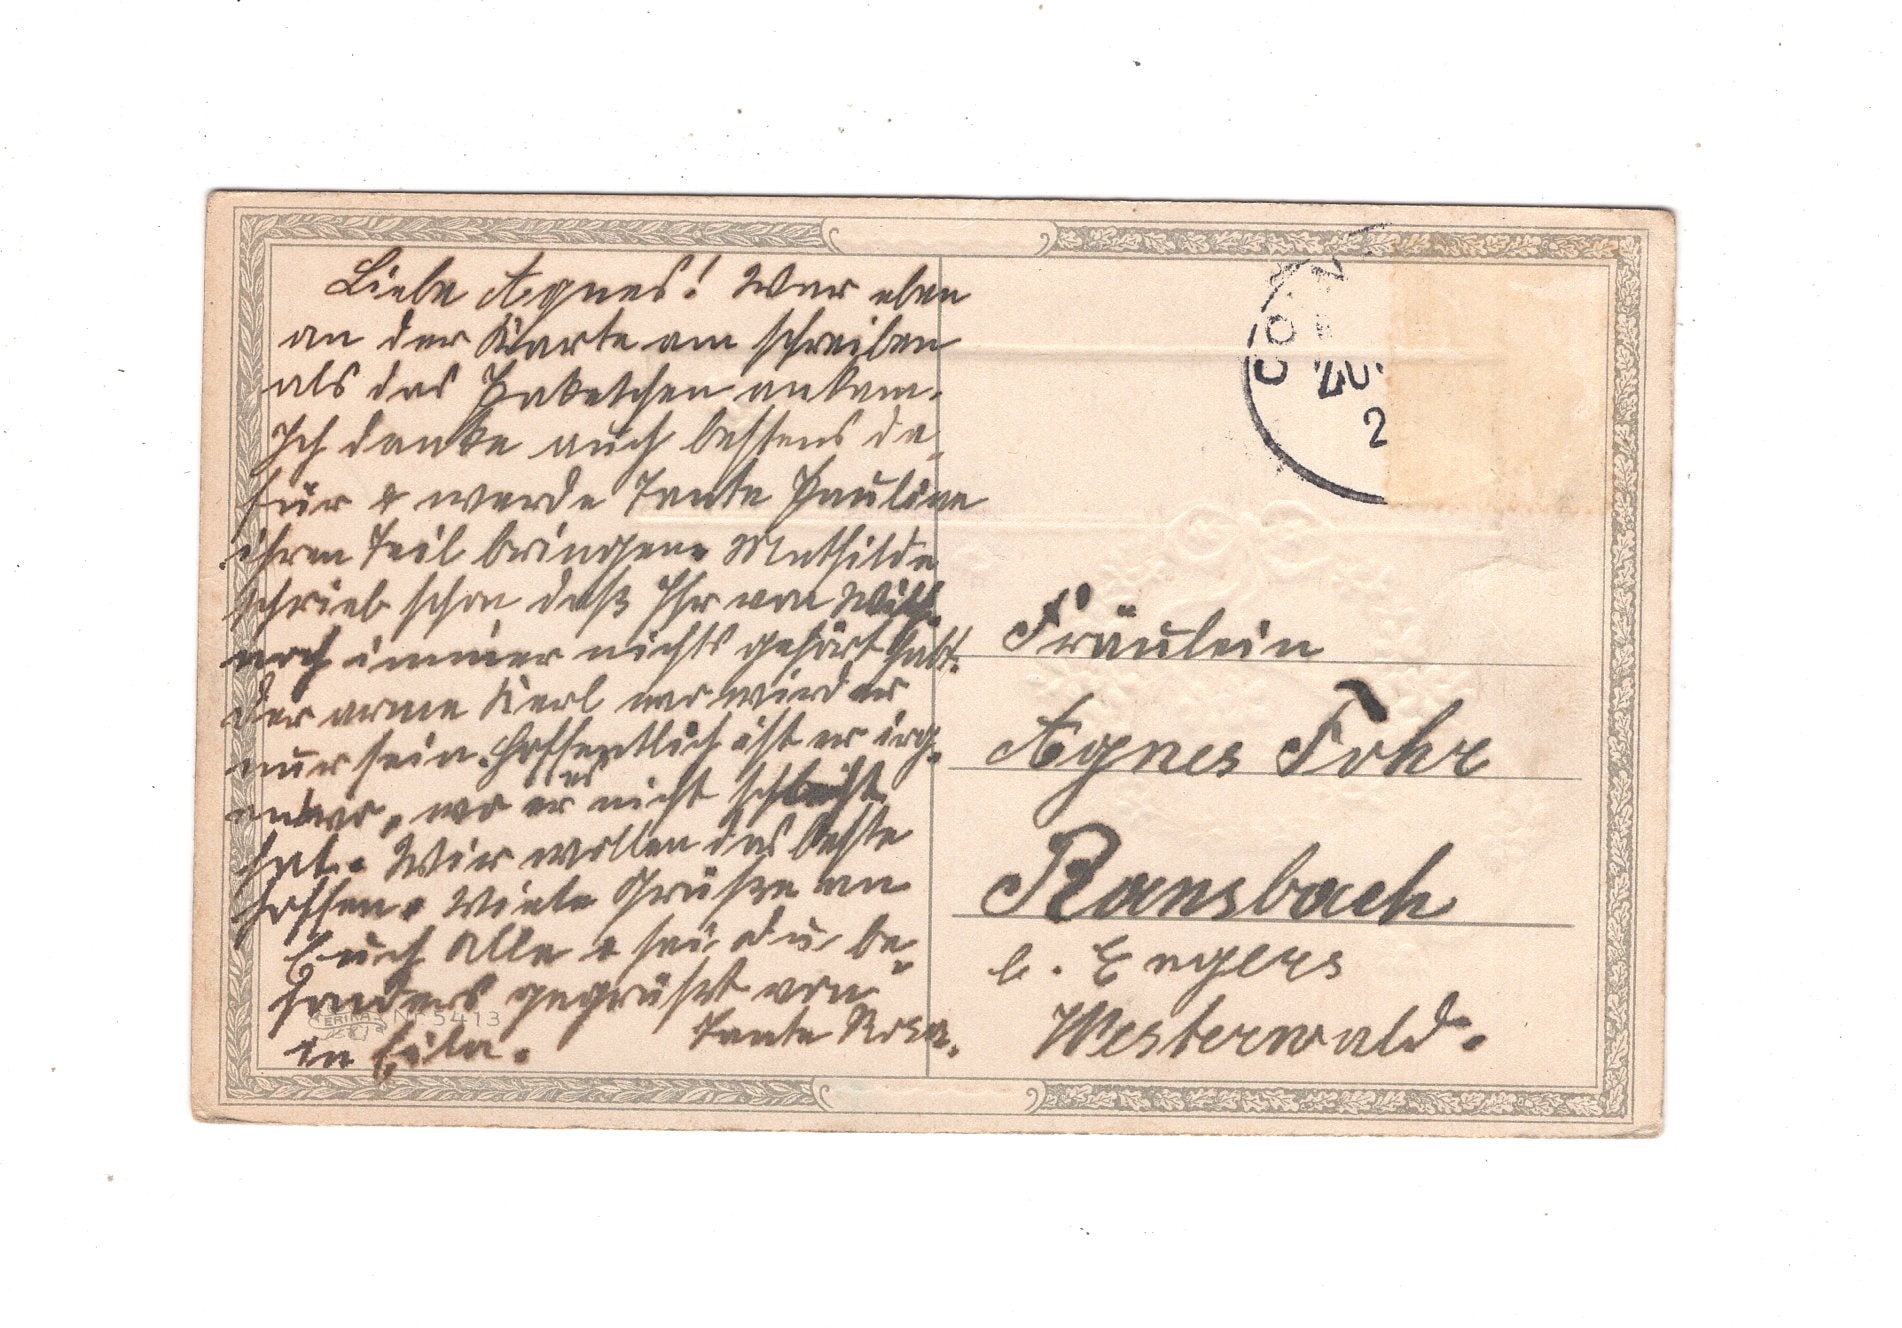 Liebe Agnes! War eben
an der Karte am schreiben
als das Paketchen ankam.
Ich danke auch bestens da-
für & werde Tante Pauline
ihren Teil bringen. Mathilde
schrieb schon daß Ihr von Will.
noch immer nichts gehört habt.
Der arme Kerl wo wird er
nur sein. Hoffentlich ist er irg-
endwo, wo er es nicht schlecht
hat. Wir wollen das beste
hoffen. Viele Grüße an
Euch Alle & sei Du be-
sonders gegrüßt von
in Eile. Tante Rosa.
ERIKA Nr 5413
Fräulein
Agnes Fohr
Ransbach
b. Engers
Westerwald.
CO
2